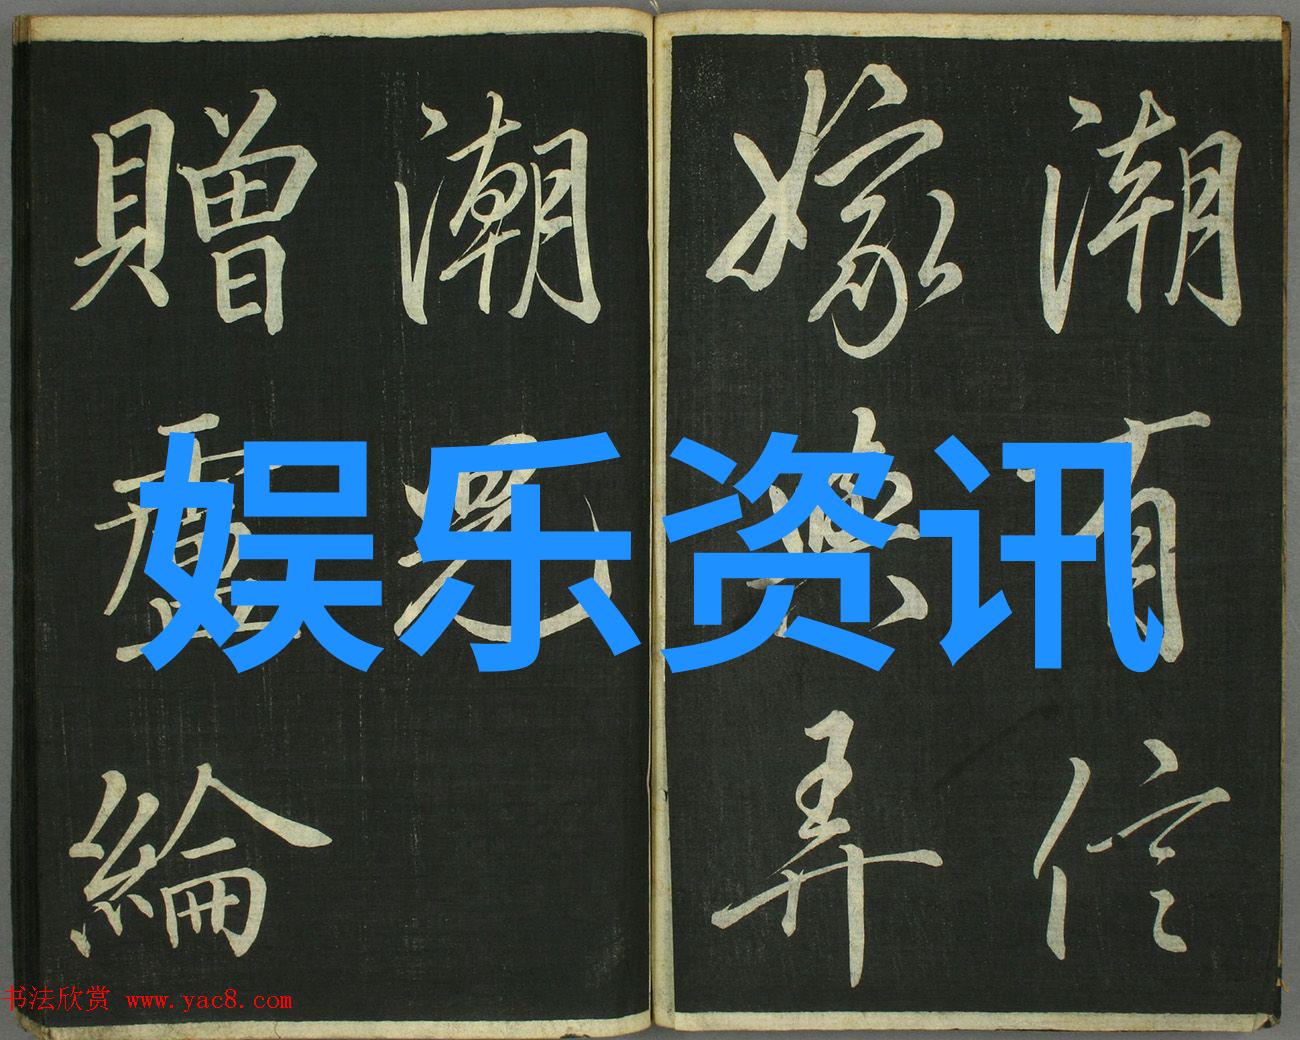 潮有信
嫁與弄
潮兒
贈盧綸
娱乐资讯
书法欣赏 www.yac8.com